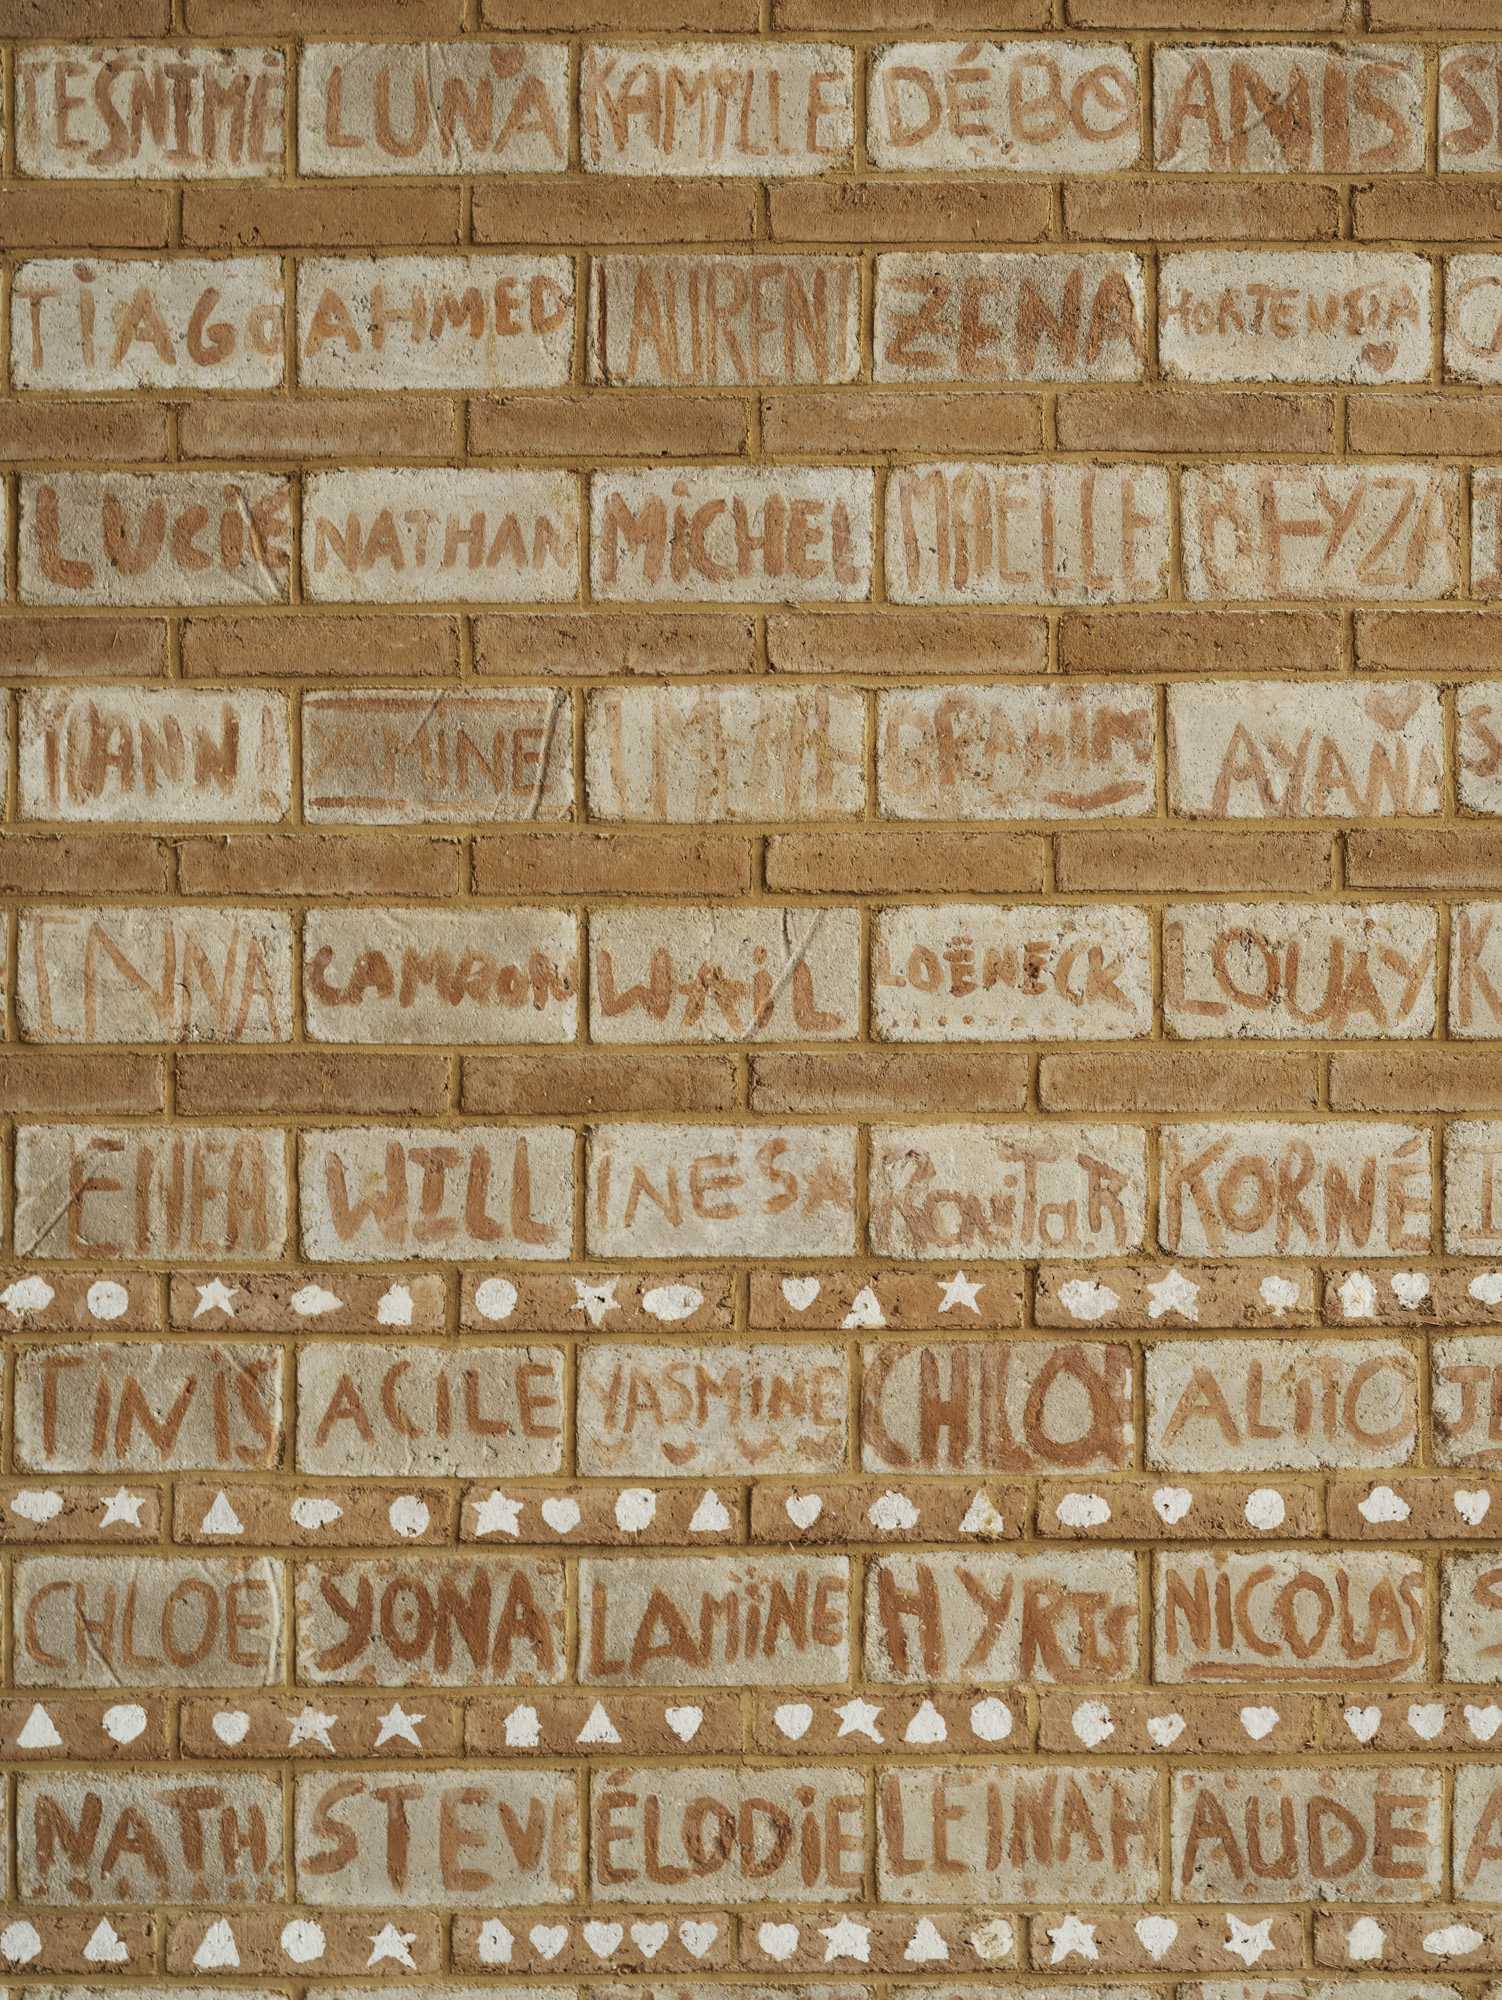 TESNIME LUNA KAMILLE DÉBO AMIS
TiAGO AHMED LAURENT ZENA HORTENSIA
LUCiE NATHAN MiCHEL MAELLE BEYZA
YANN! YAMINE IMENE IBRAHIM AYANA
INNA CAMRON WAiL LOËNECK LOUAY
ENEA WILL INESA KaviTaR KORNÉ
TIMIS ACILE YASMINE CHLOE ALITO
CHLOÉ YONA LAMiNE HYRIS NiCOLAS
NATH. STEVE ÉLODiE LEINAH AUDE